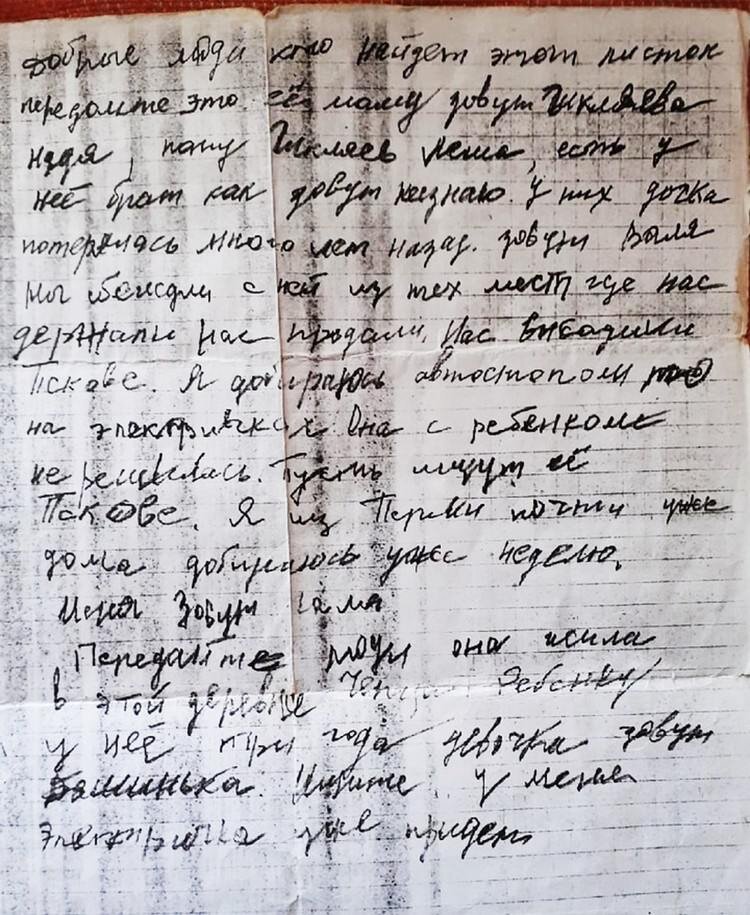 Добрые люди кто найдет этот листок
передайте это. её маму зовут Шкляева
Надя, папу Шкляев Леша, есть у
неё брат как зовут незнаю. У них дочка
потерялась много лет назад. зовут Валя
Мы сбежали с ней из тех мест где нас
держали нас продали, Нас
Пскове. Я добираюсь автостопом то
на электричках Она с ребенком
не решилась. Пусть ищут её
Пскове. Я из Перми почти уже
дома добираюсь уже неделю.
Меня Зовут
Передайте люди она жила
в этой деревне Ребенку
у неё три года девочка зовут
Ищите, у меня
Электричка уже придет